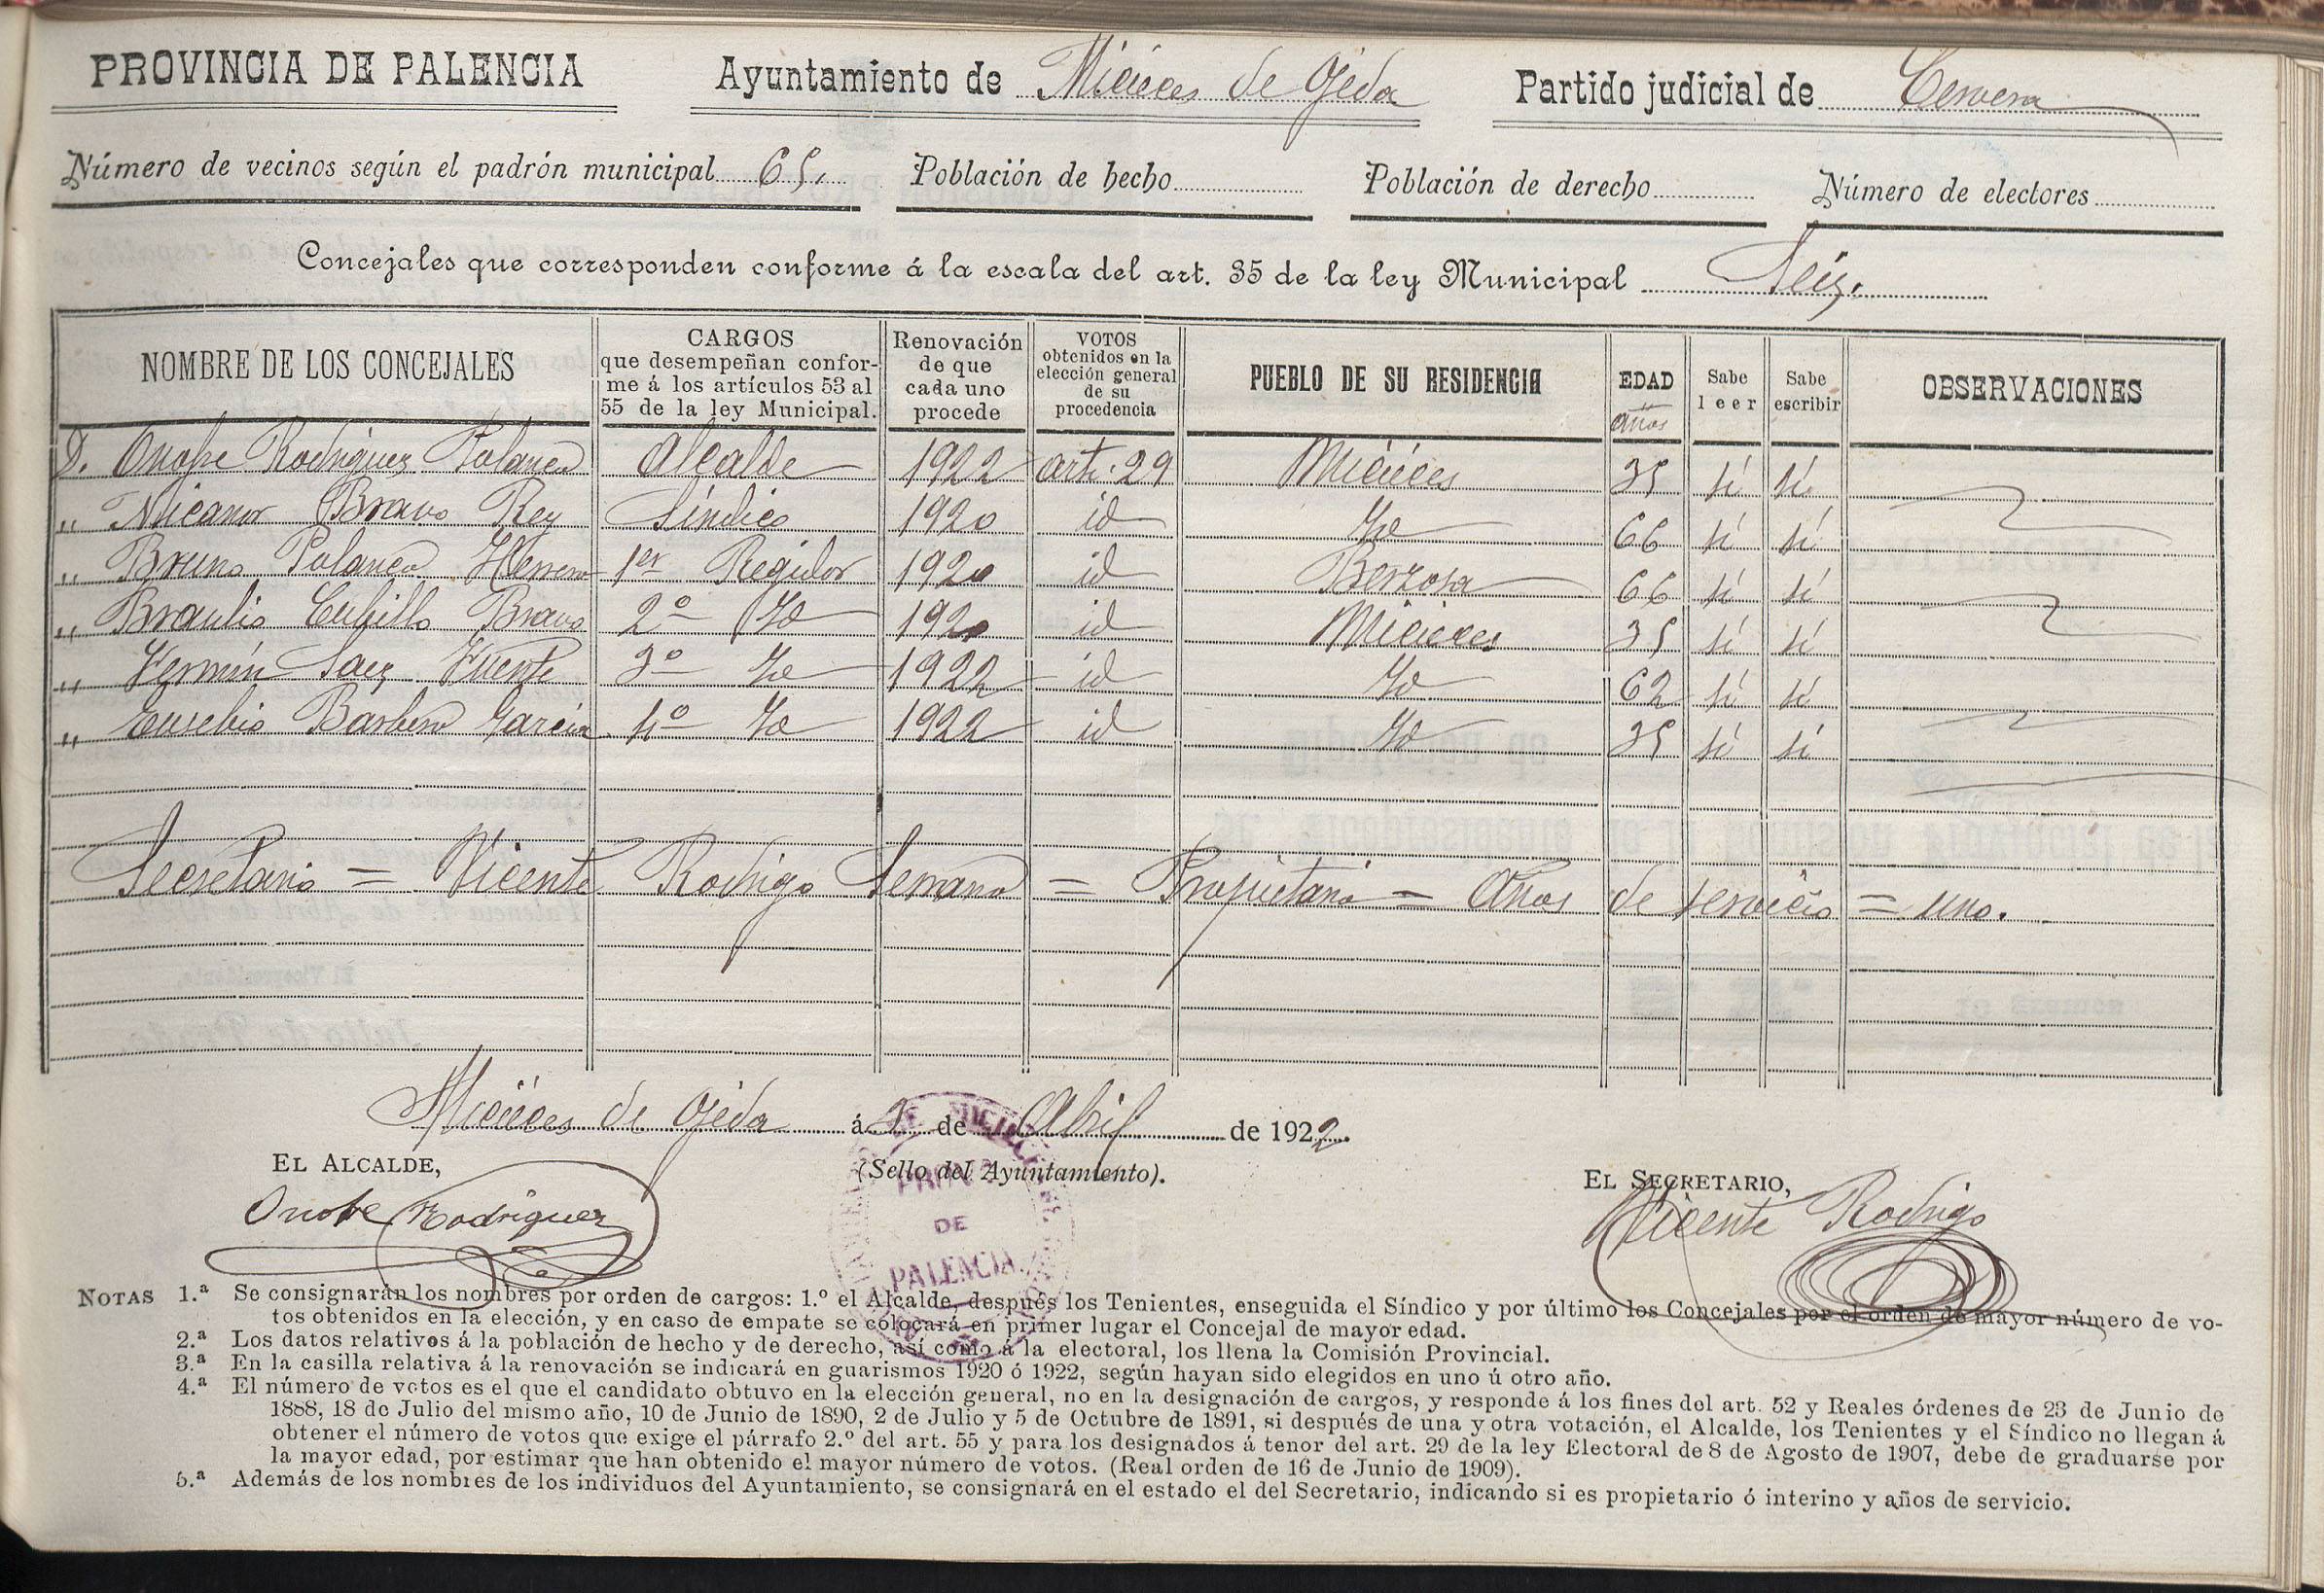 PROVINCIA DE PALENCIA Ayuntamiento de Micieces de Ojeda Partido judicial de Cervera
Número de vecinos según el padrón municipal 65. Población de hecho Población de derecho Número de electores
Concejales que corresponden conforme á la escala del art. 35 de la ley Municipal Seis.
NOMBRE DE LOS CONCEJALES CARGOS que desempeñan conforme á los artículos 53 al 55 de la ley Municipal. Renovación de que cada uno procede VOTOS obtenidos en la elección general de su procedencia PUEBLO DE SU RESIDENCIA EDAD Años Sabe leer Sabe escribir OBSERVACIONES
D. Onofre Rodriguez Polanco Alcalde 1922 art. 29 Micieces 35 si si
" Nicanor Bravo Rey Sindico 1920 id Id 66 si si
" Bruno Polanco Herrero 1er Regidor 1920 id Berzosa 66 si si
" Braulio Cubillo Bravo 2º Id 1920 id Micieces 35 si si
" Fermin Saez Fuente 3º Id 1922 id Id 62 si si
" Eusebio Barbero Garcia 4º Id 1922 id Id 35 si si
Secretario = Vicente Rodrigo Serrano = Propietario = Años de servicio = uno.
Micieces de Ojeda á 2 de Abril de 1922.
EL ALCALDE, (Sello del Ayuntamiento). EL SECRETARIO,
Onofre Rodriguez Vicente Rodrigo
DE
PALENCIA
NOTAS 1.ª Se consignarán los nombres por orden de cargos: 1.º el Alcalde, después los Tenientes, enseguida el Síndico y por último los Concejales por el orden de mayor número de vo-
tos obtenidos en la elección, y en caso de empate se colocará en primer lugar el Concejal de mayor edad.
2.ª Los datos relativos á la población de hecho y de derecho, así como á la electoral, los llena la Comisión Provincial.
3.ª En la casilla relativa á la renovación se indicará en guarismos 1920 ó 1922, según hayan sido elegidos en uno ú otro año.
4.ª El número de votos es el que el candidato obtuvo en la elección general, no en la designación de cargos, y responde á los fines del art. 52 y Reales órdenes de 23 de Junio de
1888, 18 de Julio del mismo año, 10 de Junio de 1890, 2 de Julio y 5 de Octubre de 1891, si después de una y otra votación, el Alcalde, los Tenientes y el Síndico no llegan á
obtener el número de votos que exige el párrafo 2.º del art. 55 y para los designados á tenor del art. 29 de la ley Electoral de 8 de Agosto de 1907, debe de graduarse por
la mayor edad, por estimar que han obtenido el mayor número de votos. (Real orden de 16 de Junio de 1909).
5.ª Además de los nombres de los individuos del Ayuntamiento, se consignará en el estado el del Secretario, indicando si es propietario ó interino y años de servicio.